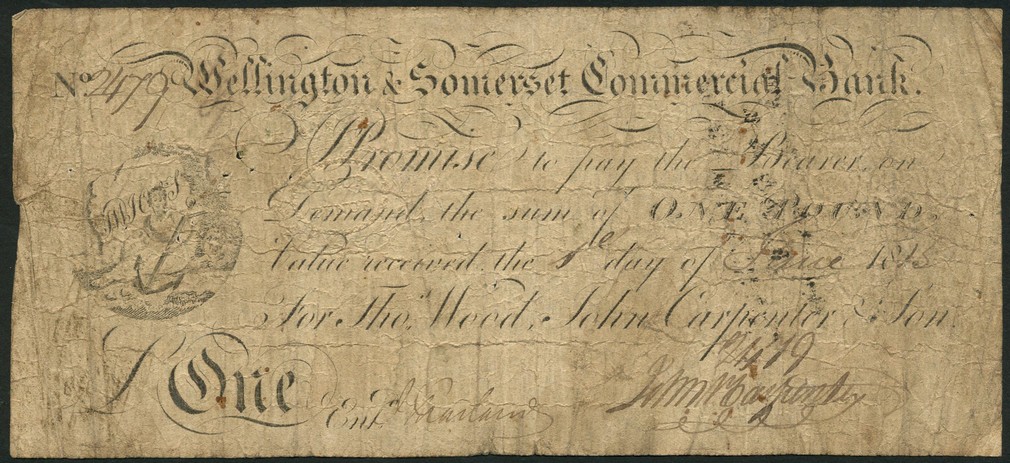 No. 2479 Wellington & Somerset Commercial Bank.
I Promise to pay the Bearer, on
Demand, the sum of ONE POUND,
Value received, the 1 day of June 1815
For Tho. Wood, John Carpenter & Son.
£ One
Entd
No 2479
John Carpenter